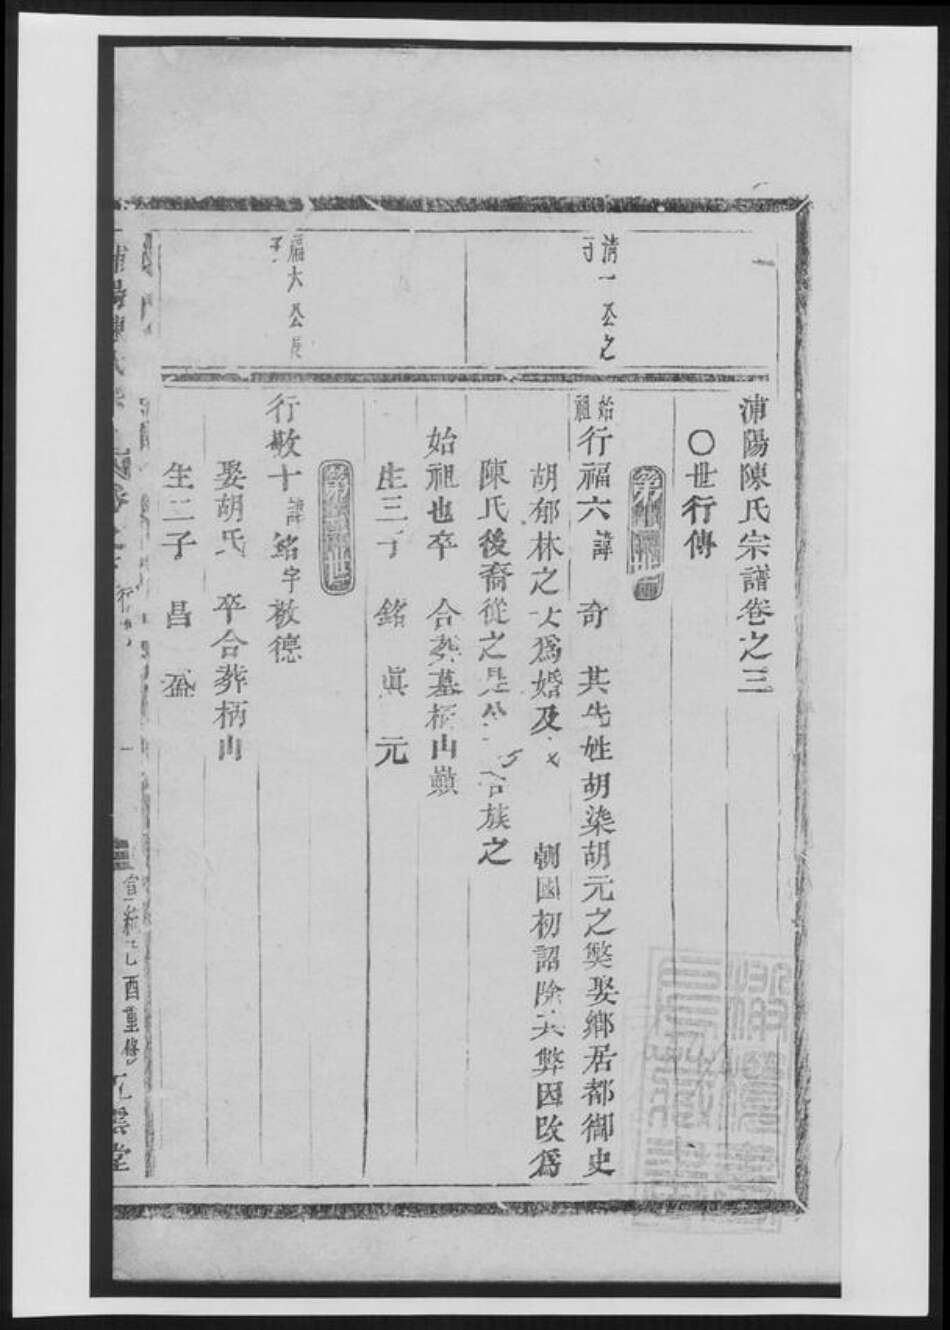 浦陽陳氏宗譜卷之三
〇世行傳
清一公之
子
始祖行福六諱 奇 其先姓胡染胡元之獘娶鄉居都御史
胡郁林之女爲婚及 朝國初詔除其弊因改爲
陳氏後裔從之是公 合族之
始祖也卒 合葬墓柄山巔
生三子 銘 眞 元
福六公長
子
行敬十諱銘字敬德
娶胡氏 卒合葬柄山
生二子 昌 盈
浦陽陳氏宗
卷之三 行傳
一
宣統己酉重修
雲堂